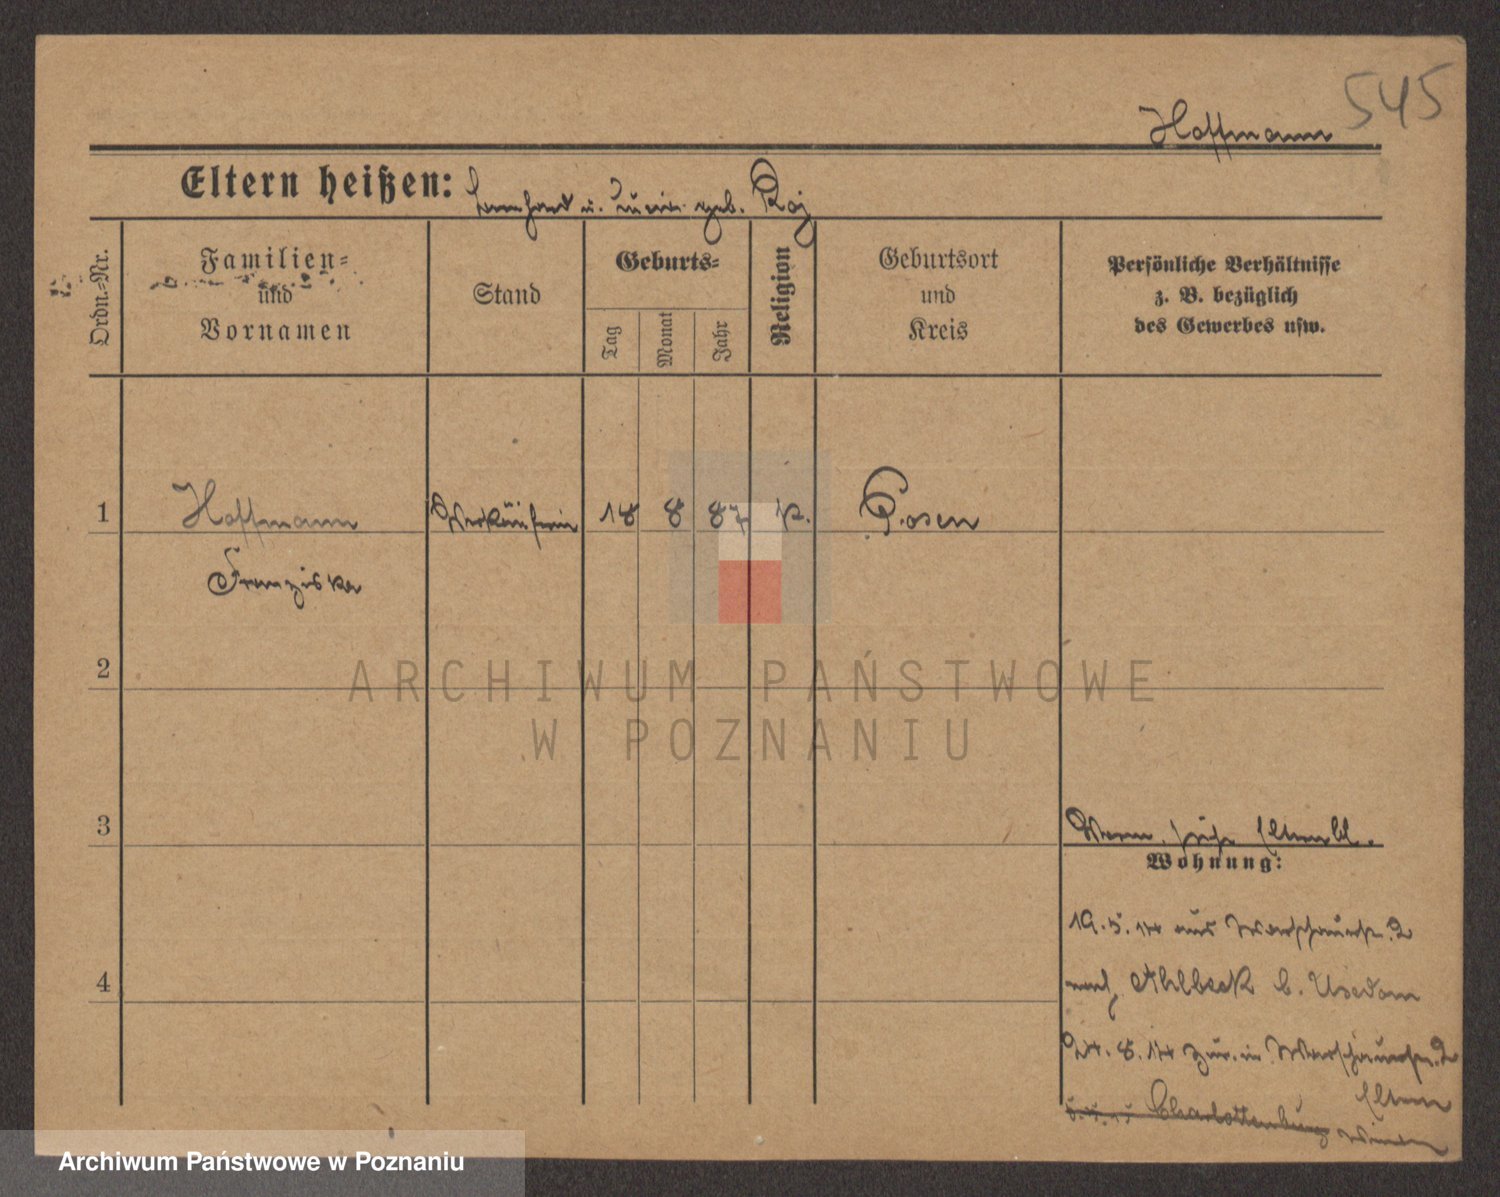 545
Hoffmann
Eltern heißen: u. geb. Raj
Ordn.-Nr.
Familien-
und
Vornamen
Stand
Geburts-
Tag
Monat
Jahr
Religion
Geburtsort
und
Kreis
Persönliche Verhältnisse
z. B. bezüglich
des Gewerbes usw.
1
Hoffmann
Verkäuferin
18
8
87
k.
Posen
Franziska
2
ARCHIWUM PAŃSTWOWE
W POZNANIU
3
Verm. siehe Elternbl.
Wohnung:
19.5.14 aus Warschauerstr. 2
nach Ahlbeck b. Usedom
4
24.8.14 zur. in Warschauerstr. 2
Eltern
Charlottenburg
Archiwum Państwowe w Poznaniu